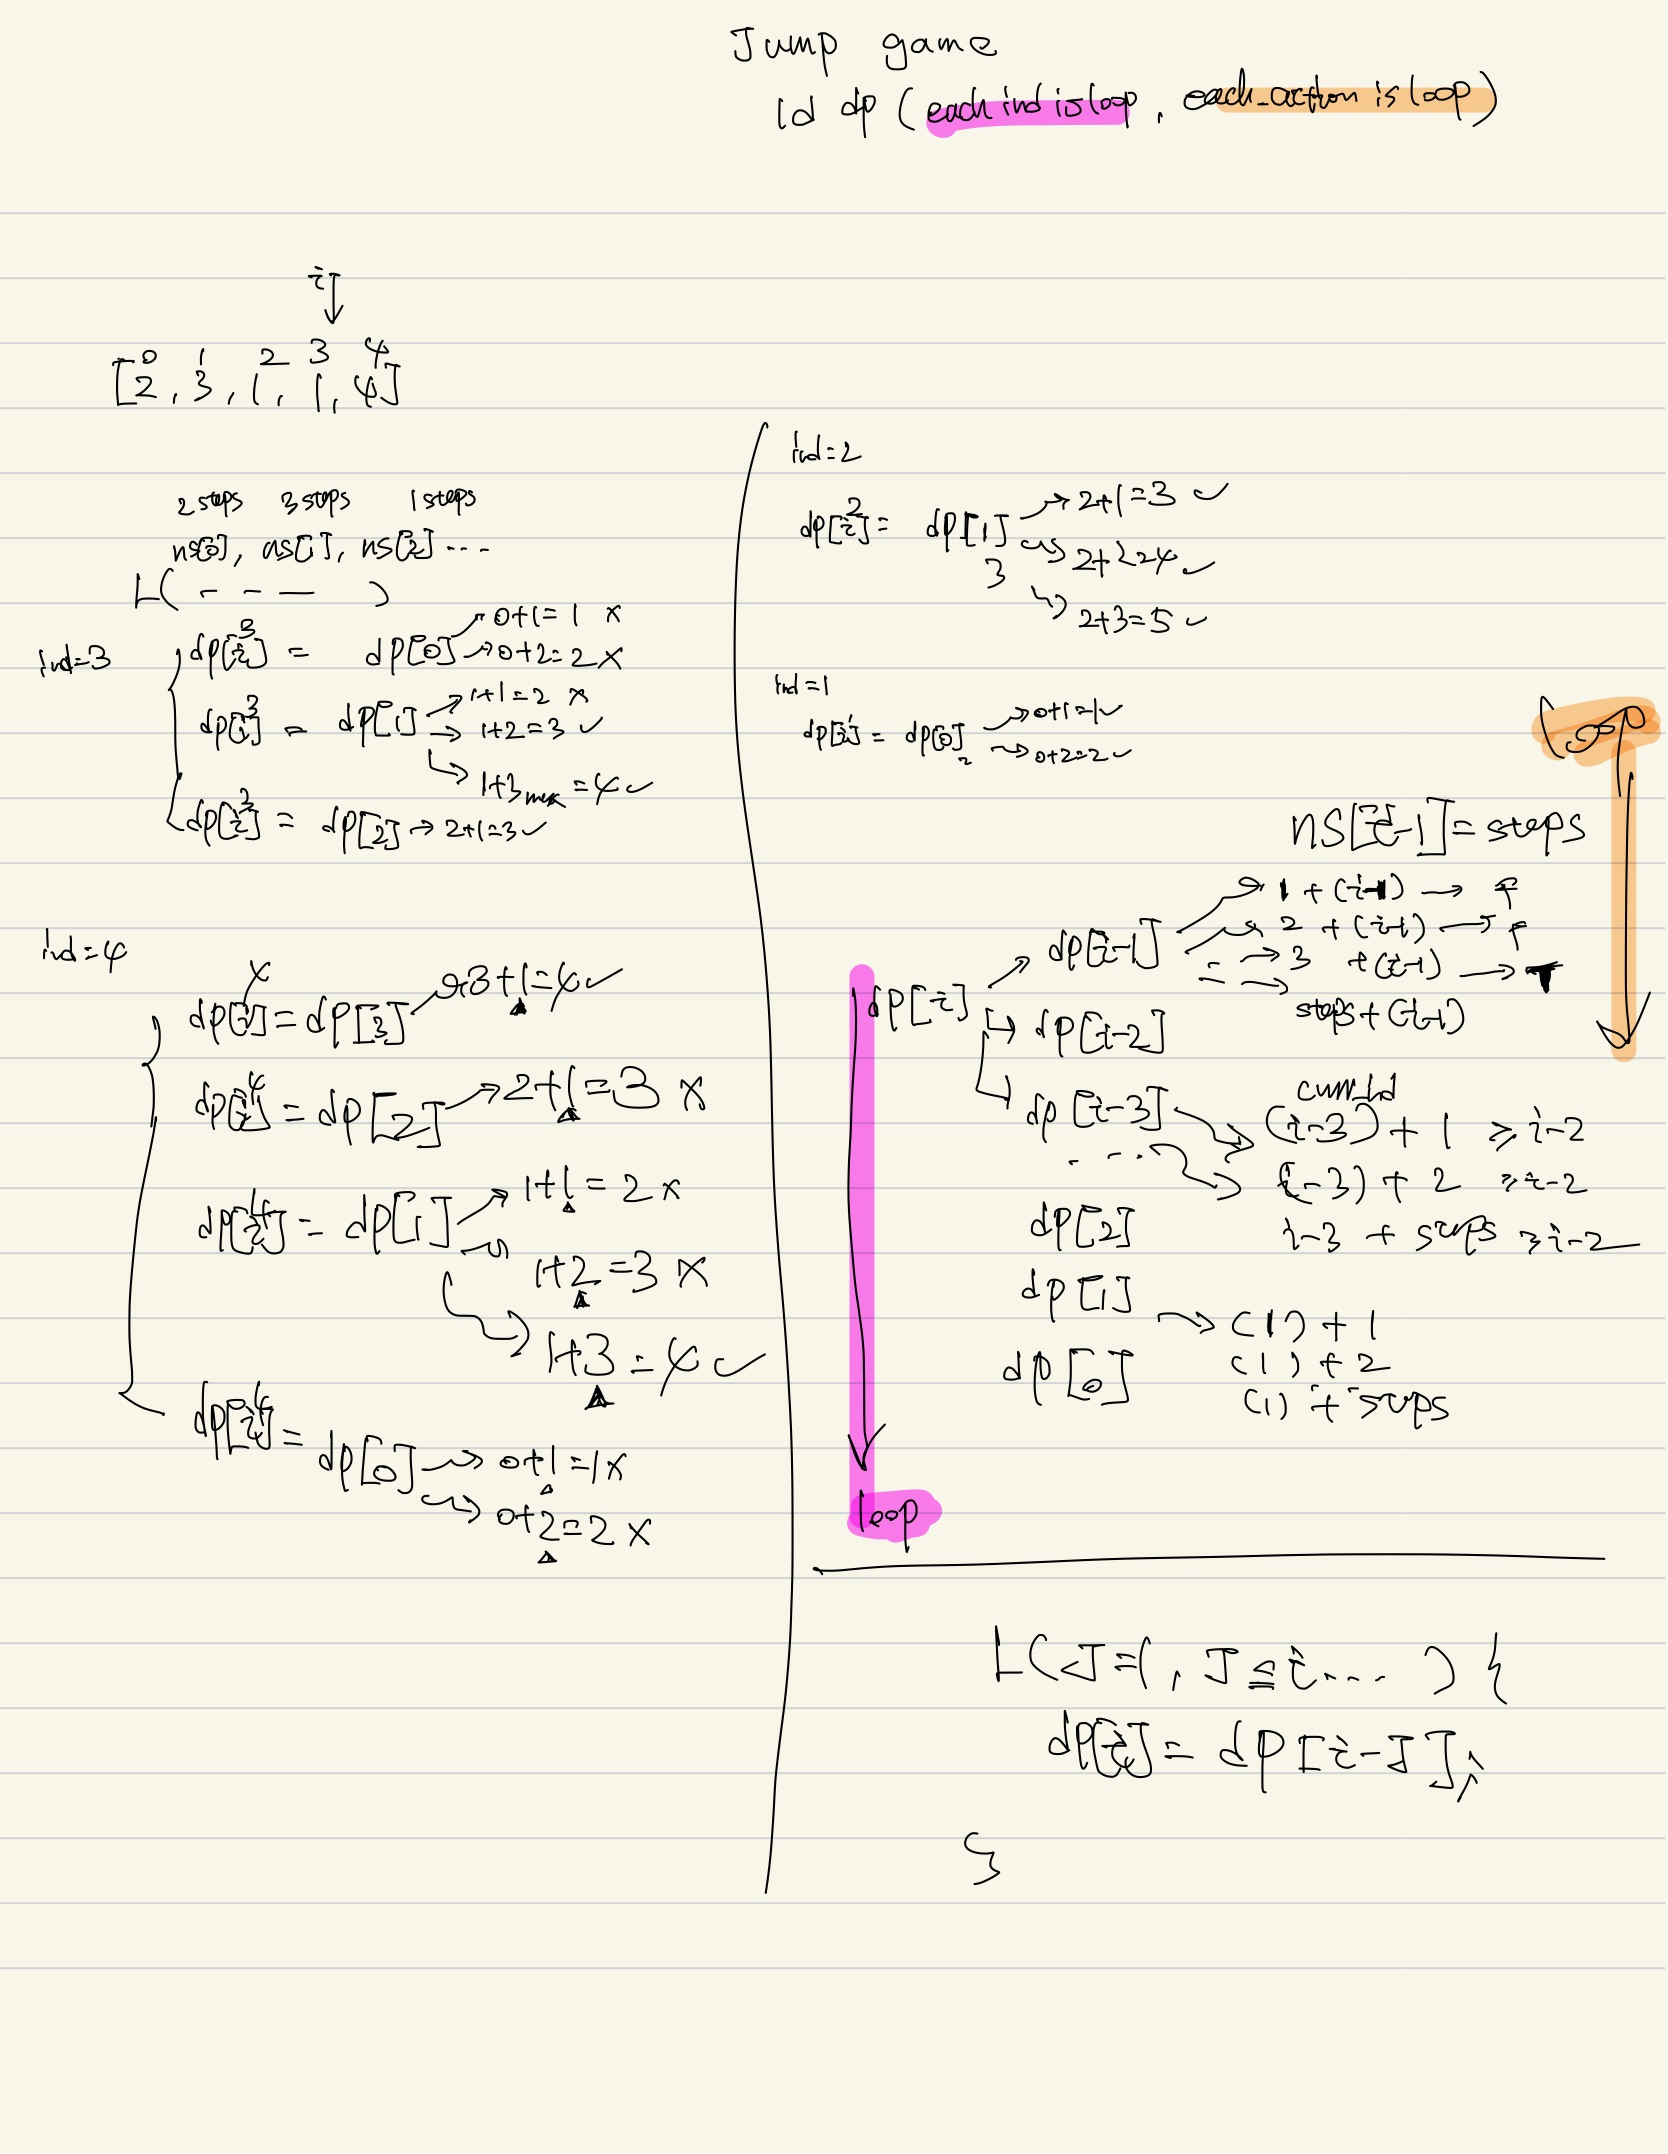 Jump game
1d dp (each ind is loop, each_action is loop)
i
0 1 2 3 4
[2, 3, 1, 1, 4]
2 steps 3 steps 1 steps
ns[0], ns[1], ns[2] ...
L( - - — )
ind=3
dp[i]3 = dp[0] → 0+1=1 x
→ 0+2=2 x
dp[i]3 = dp[1] → 1+1=2 x
→ 1+2=3 ✓
↳ 1+3max=4 ✓
dp[i]3 = dp[2] → 2+1=3 ✓
ind=4
dp[i]4 = dp[3] → 3+1=4 ✓
dp[i]4 = dp[2] → 2+1=3 x
dp[i]4 = dp[1] → 1+1=2 x
1+2=3 x
1+3=4 ✓
dp[i]4 = dp[0] → 0+1=1 x
→ 0+2=2 x
ind=2
dp[i]2 = dp[1] → 2+1=3 ✓
3 → 2+2=4 ✓
↳ 2+3=5 ✓
ind=1
dp[i]1 = dp[0] → 0+1=1 ✓
2 → 0+2=2 ✓
loop
ns[i-1] = steps
dp[i] → dp[i-1] → 1+(i-1) → F
→ 2+(i-1) → F
→ 3 +(i-1) → T
→ steps+(i-1)
↳ dp[i-2]
↳ dp[i-3]
cur_id
(i-3) + 1 ≥ i-2
(i-3) + 2 ≥ i-2
i-3 + steps ≥ i-2
...
dp[2]
dp[1] → (1) + 1
(1) + 2
(1) + steps
dp[0]
loop
L(J=1, J≤i... ) {
dp[i] = dp[i-J];
}